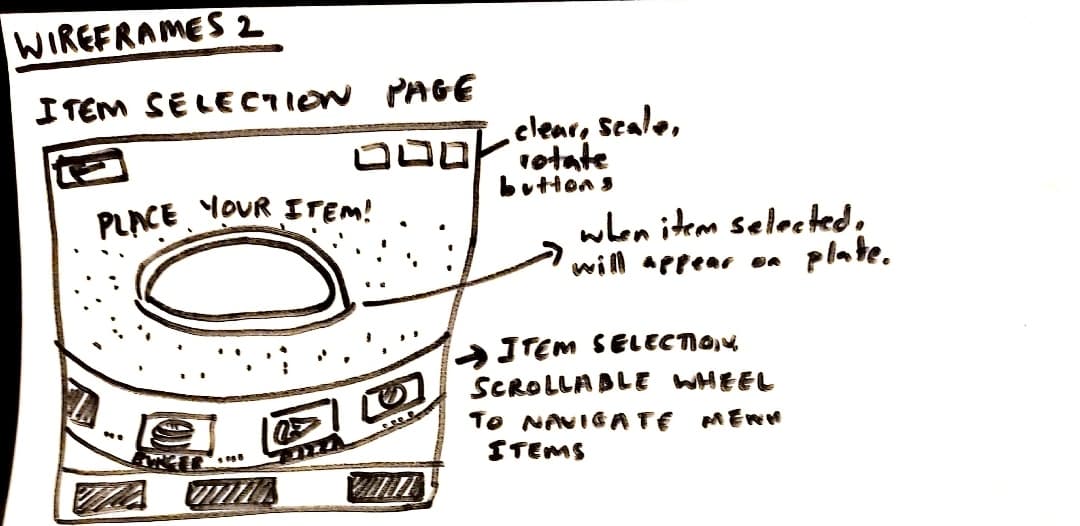 WIREFRAMES 2
ITEM SELECTION PAGE
clear, scale,
rotate
buttons
PLACE YOUR ITEM!
when item selected,
will appear on plate.
→ ITEM SELECTION,
SCROLLABLE WHEEL
TO NAVIGATE MENU
ITEMS
BURGER
PIZZA